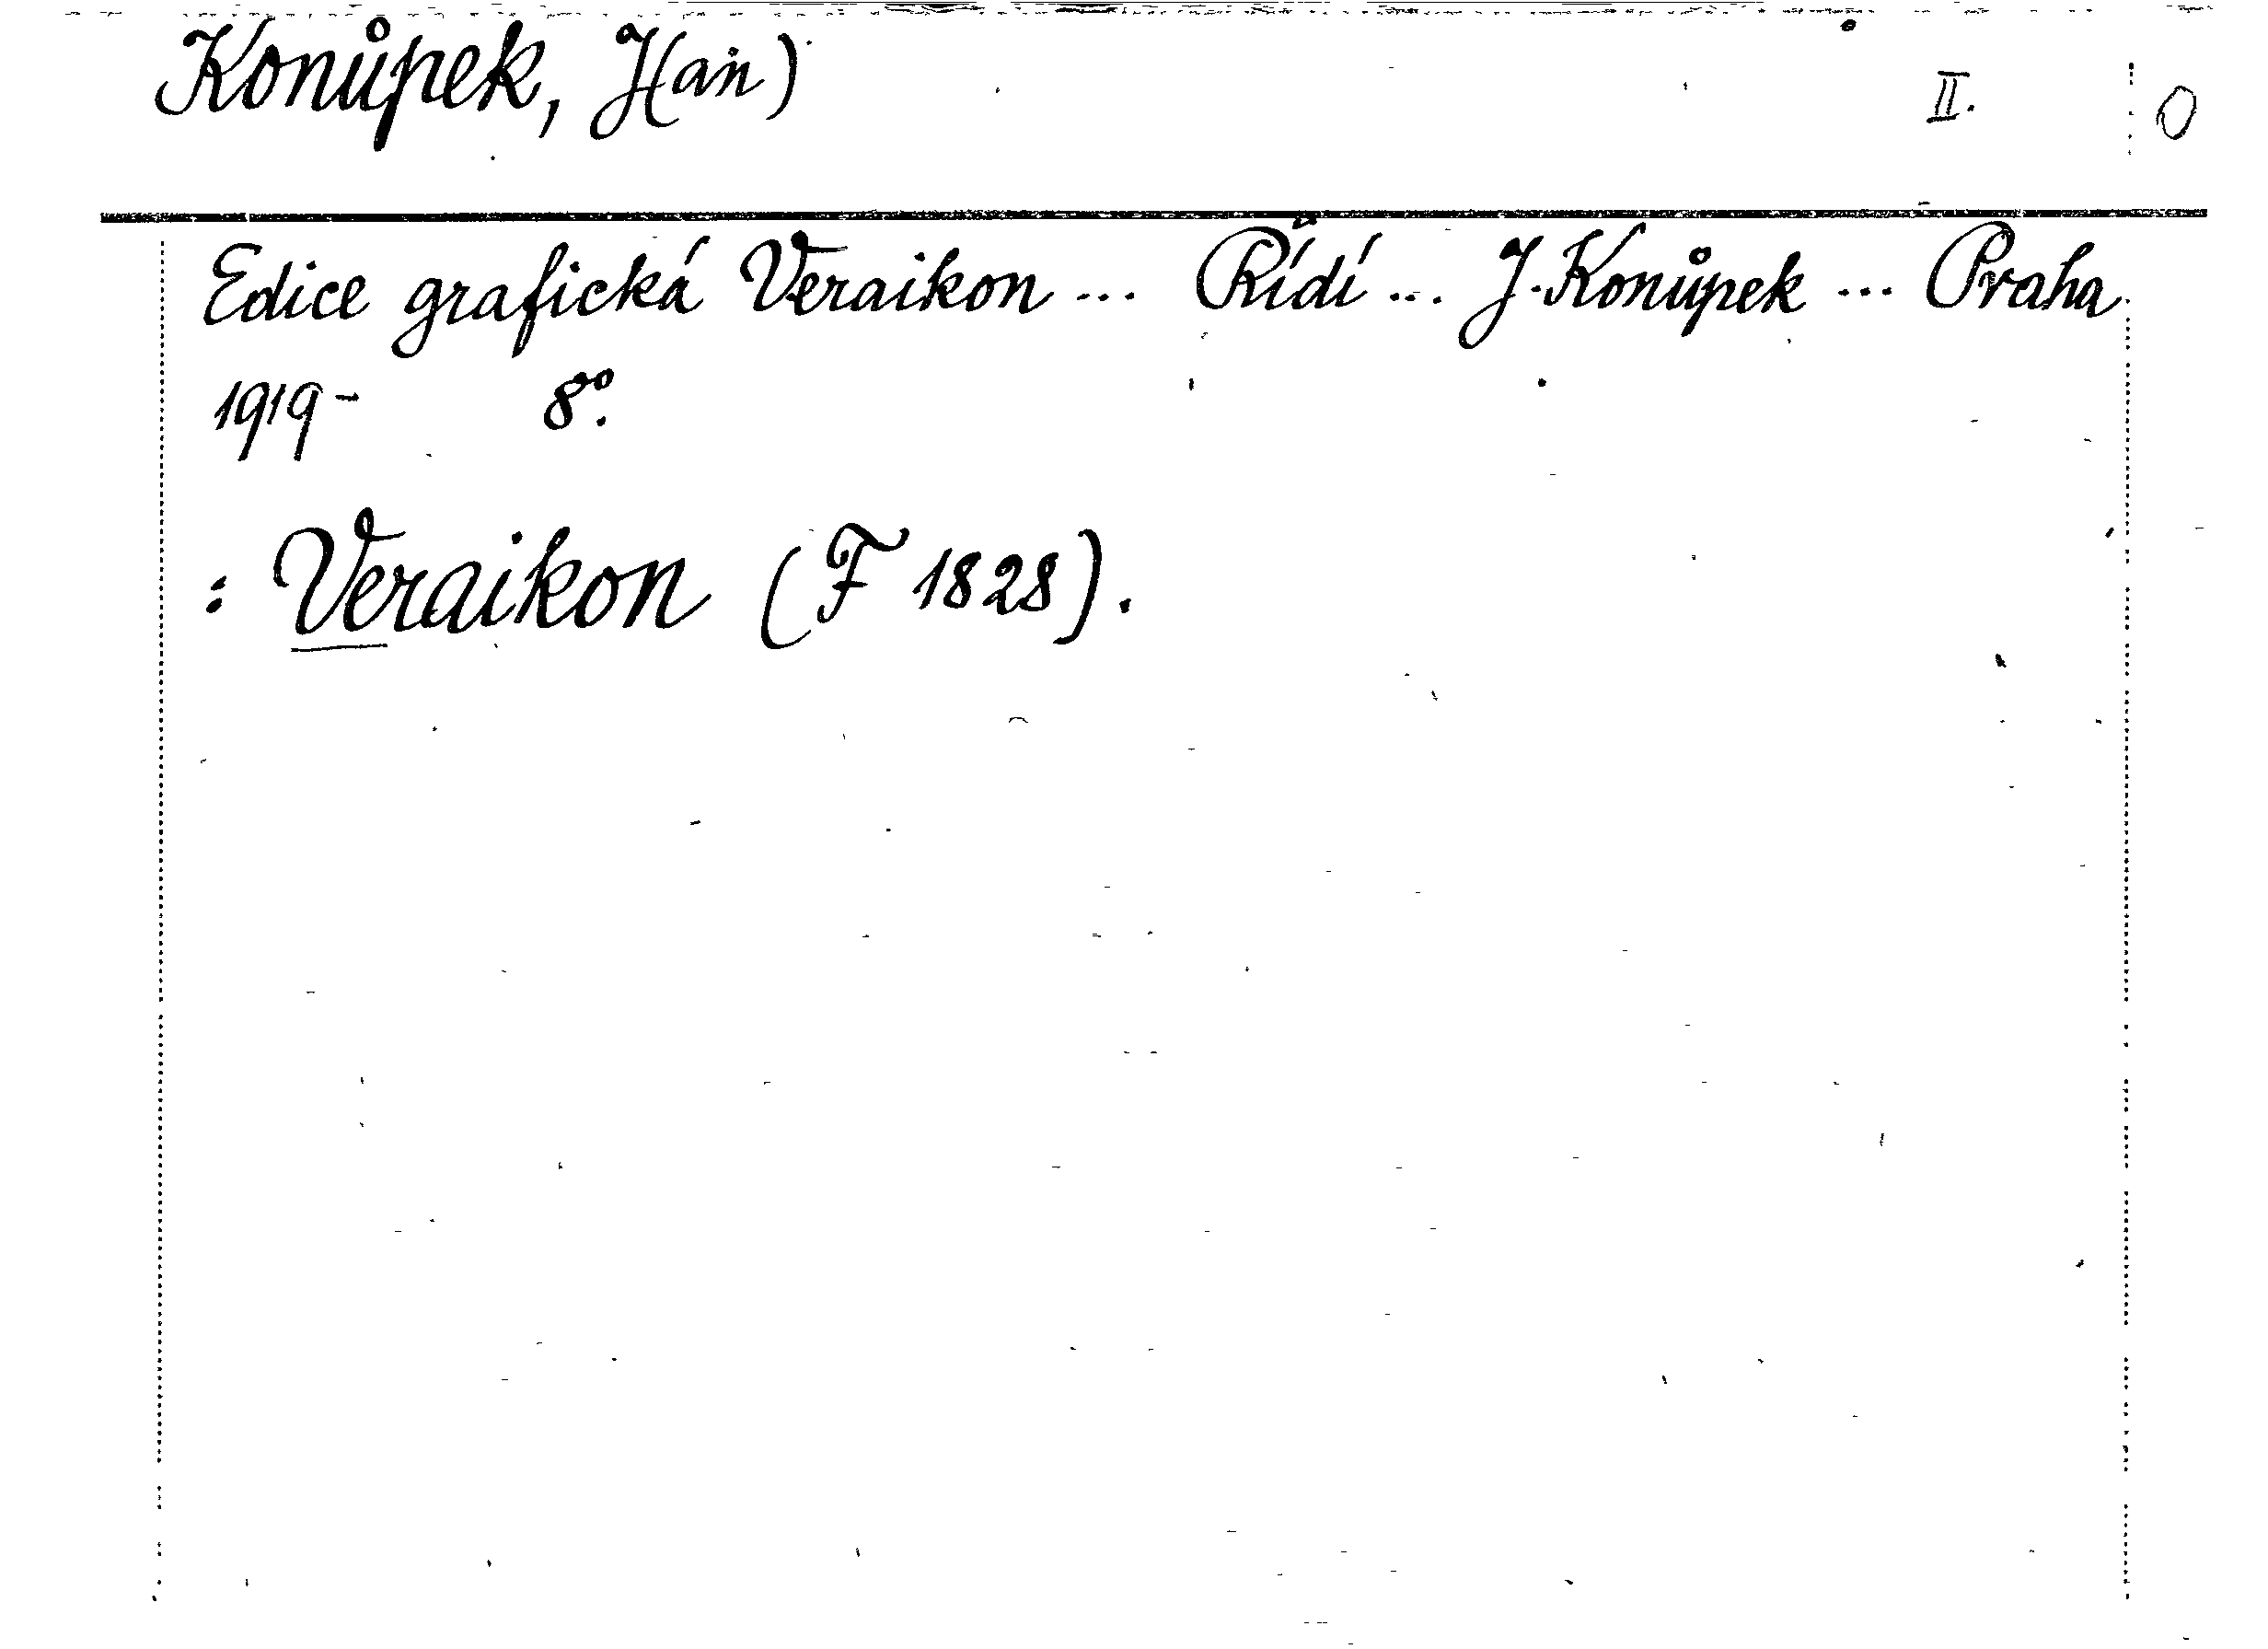 Konůpek, J(an) II. O
Edice grafická Veraikon ... Řídí ... J. Konůpek ... Praha
1919- 8°.
: Veraikon (F 1828).